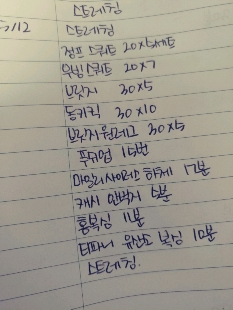 스트레칭
5/12 스트레칭
점프 스쿼트 20×5세트
무빙 스쿼트 20×7
브릿지 30×5
동키킥 30×10
브릿지 원레그 30×5
푸쉬업 15번
마일리사이러스 하체 17분
캐시 앞벅지 5분
홈복싱 11분
티파니 유산소 복싱 10분
스트레칭.